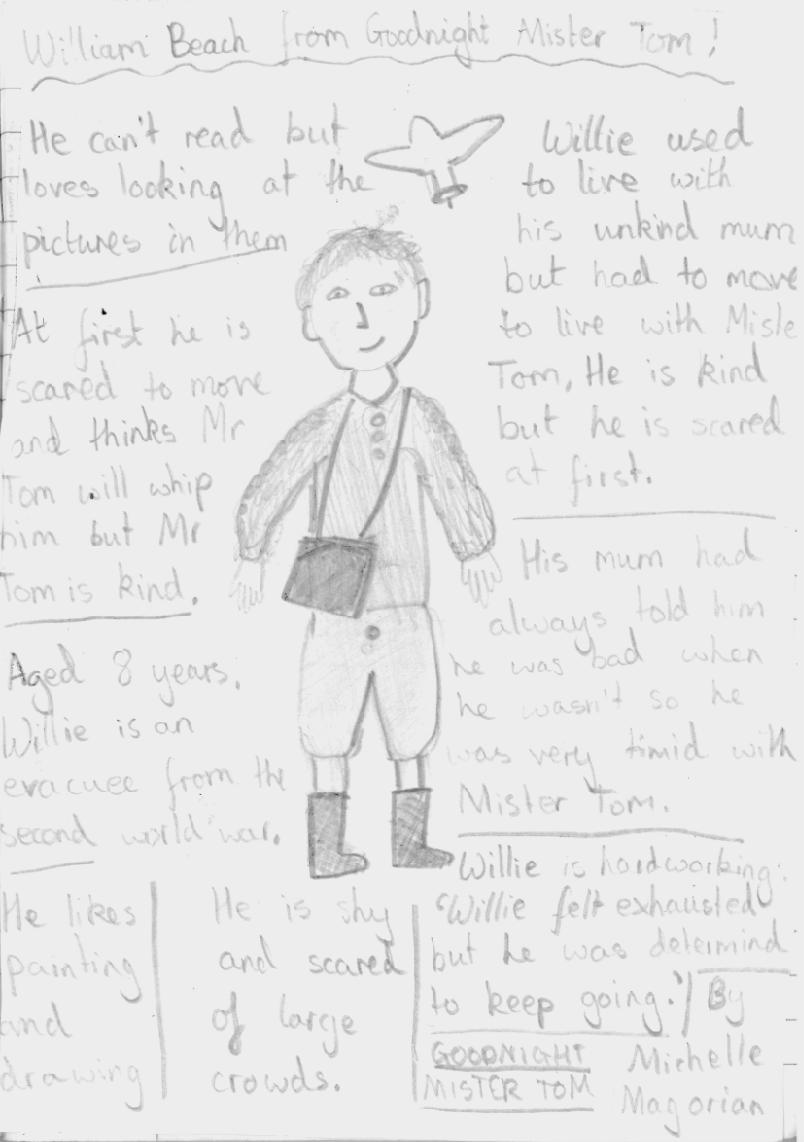 William Beach from Goodnight Mister Tom!
He can't read but
loves looking at the
pictures in them
At first he is
scared to move
and thinks Mr
Tom will whip
him but Mr
Tom is kind.
Aged 8 years.
Willie is an
evacuee from the
second world war.
He likes
painting
and
drawing
He is shy
and scared
of large
crowds.
Willie used
to live with
his unkind mum
but had to move
to live with Miste
Tom, He is kind
but he is scared
at first.
His mum had
always told him
he was bad when
he wasn't so he
was very timid with
Mister Tom.
Willie is hardworking:
'Willie felt exhausted
but he was determind
to keep going.'
GOODNIGHT
MISTER TOM
By
Michelle
Magorian